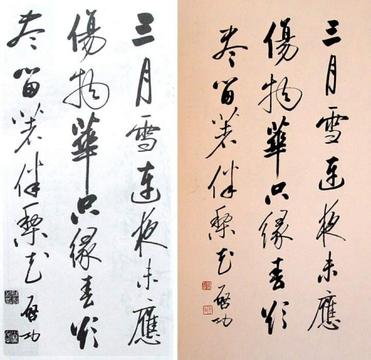 三月雪連夜未應
傷物華只緣春欲
盡留著伴梨花
啟功
三月雪連夜未應
傷物華只緣春欲
盡留著伴梨花
啟功